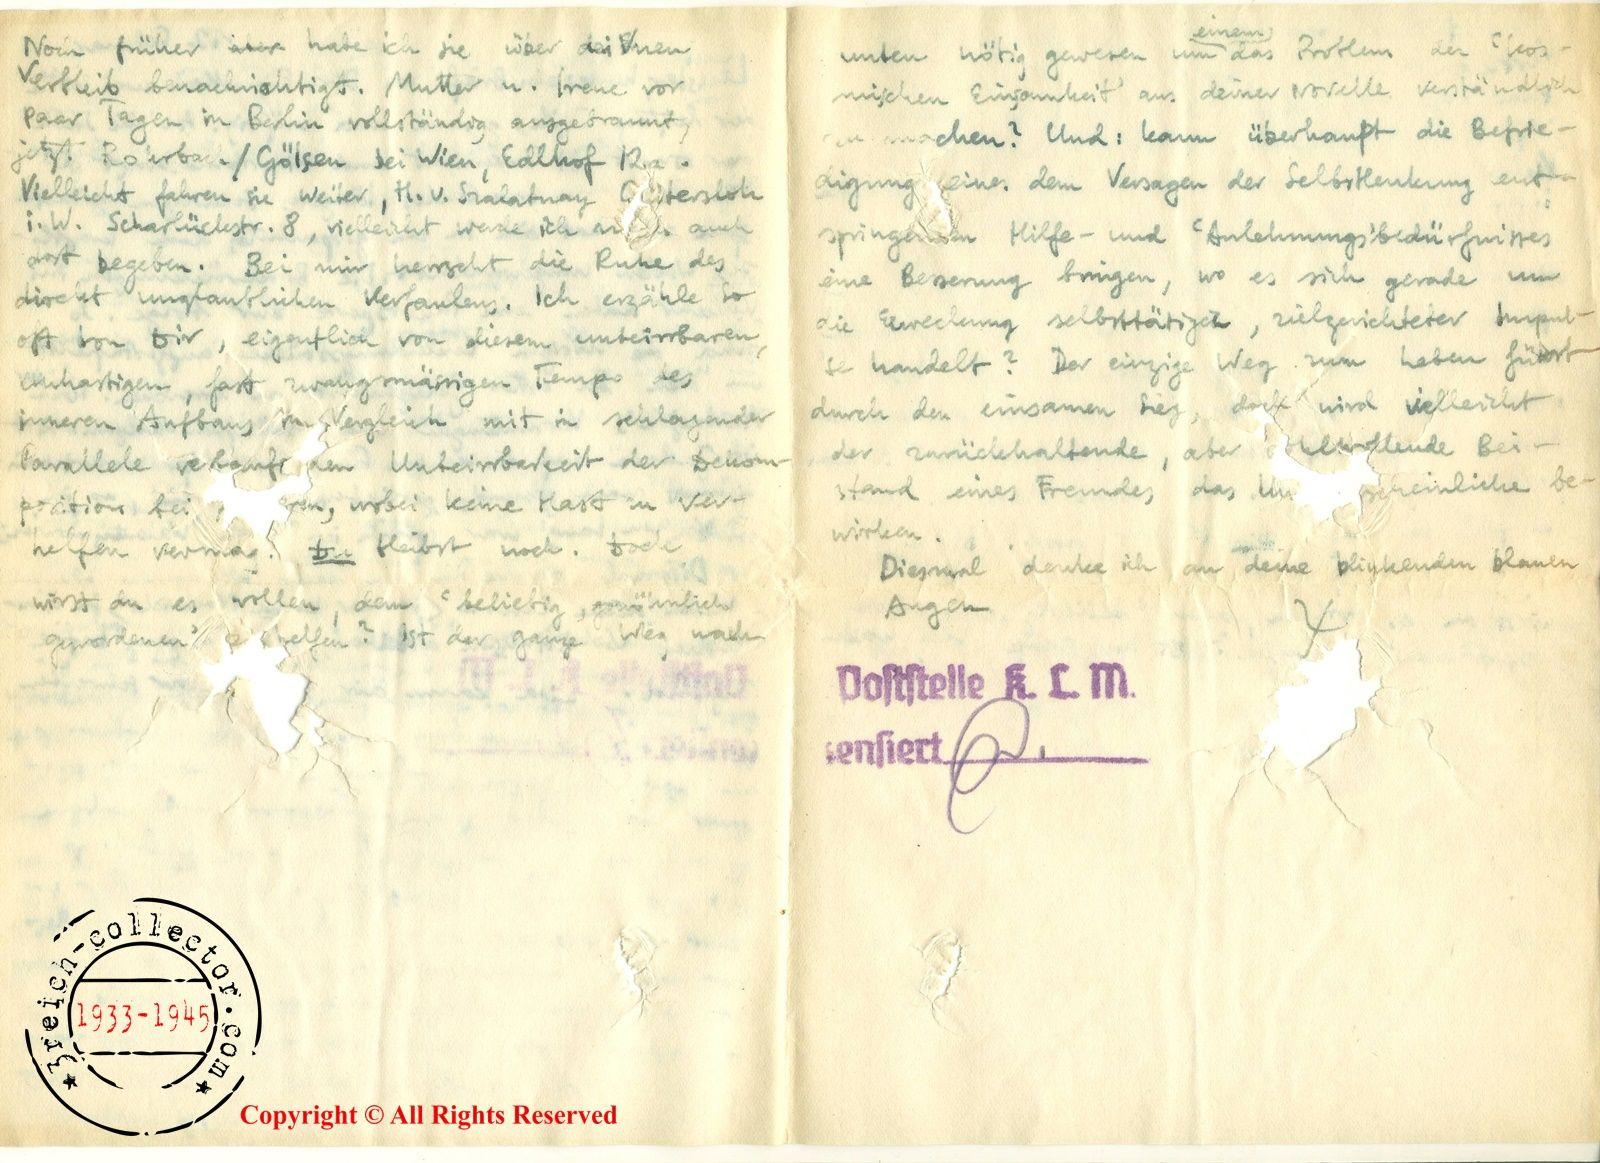 Noch früher aber habe ich sie über deinen
Verbleib benachrichtigt. Mutter u. Irene vor
paar Tagen in Berlin vollständig ausgebrannt,
jetzt Rohrbach/Gölsen bei Wien, Edlhof 12a.
Vielleicht fahren sie weiter, H. v. Szalatnay Gütersloh
i. W. Scharlückstr. 8, vielleicht werde ich auch
dort begeben. Bei mir herrscht die Ruhe des
direkt unglaublichen Verfaulens. Ich erzähle so
oft von Dir, eigentlich von diesem unbeirrbaren,
unhastigen, fast zwangsmässigen Tempo des
inneren Aufbaus im Vergleich mit in schlagender
Parallele den Unbeirrbarkeit der Dekom-
position bei wobei keine Hast zu ver-
helfen vermag. Du bleibst noch. Doch
wirst du es wollen, dem "beliebig, gewöhnlich
gewordenen" helfen? Ist der ganze Weg nach
unten nötig gewesen um einem das Problem der "kos-
mischen Einsamkeit" aus deiner Novelle verständlich
zu machen? Und: kann überhaupt die Befrie-
digung eines dem Versagen der Selbstlenkung ent-
springenden Hilfe- und "Anlehnungs"bedürfnisses
eine Besserung bringen, wo es sich gerade um
die Erweckung selbsttätiger, zielgerichteter Impul-
se handelt? Der einzige Weg zum Leben führt
durch den einsamen Sieg, doch wird vielleicht
der zurückhaltende, aber wohlwollende Bei-
stand eines Fremdes, das be-
wirken.
Diesmal denke ich an deine blinkenden blauen
Augen
Poststelle K. L. M.
zensiert
3reich-collector.com
1933-1945
Copyright © All Rights Reserved